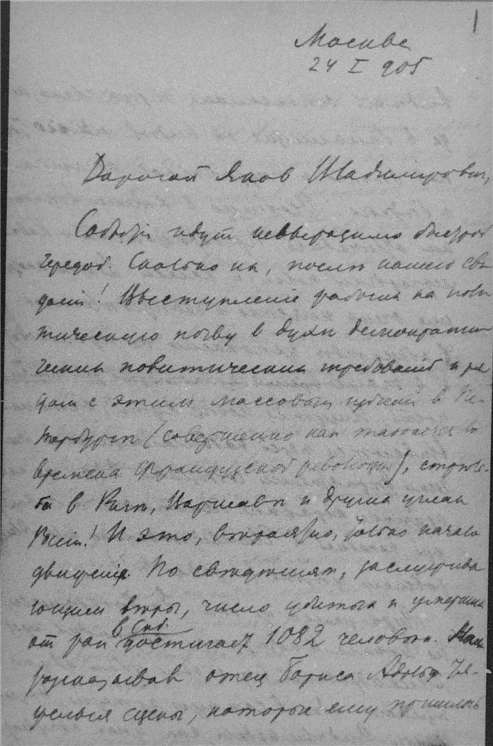 1
Москва
24 I 905
Дорогой Яков Владимирович,
События идут невыразимо быстрой
чередой. Сколько их, после нашего сви-
дания! Выступление рабочих на поли-
тическую почву в духе демократи-
ческих политических требований и ря-
дом с этим массовые убийства в Пе-
тербурге (совершенно как
времена французской революции),
в Риге, Варшаве и других углах
России! И это, вероятно, только начало
движения. По сведениям, заслужива-
ющим веры, число убитых и умерших
от ран в Спб. достигает 1082 человек. Нам
рассказывал отец Бориса
сцены, которые ему пришлось